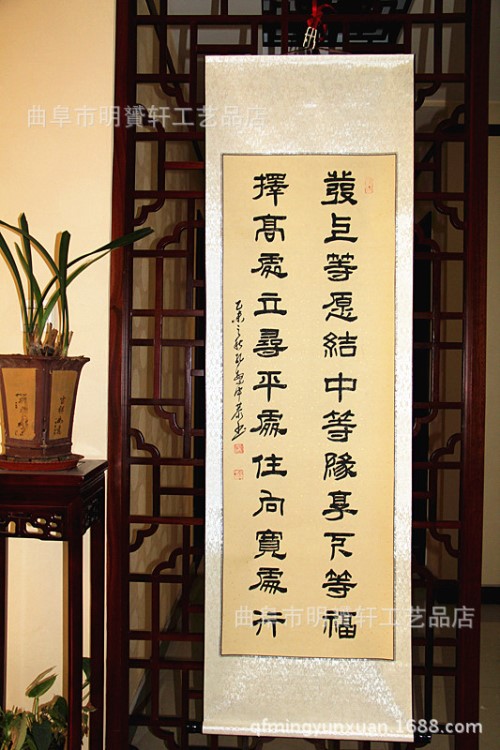 曲阜市明贇轩工艺品店
發上等愿結中等緣享下等福
擇高處立尋平處住向寬處行
乙未之秋
曲阜市明贇轩工艺品店
qfmingyunxuan.1688.com